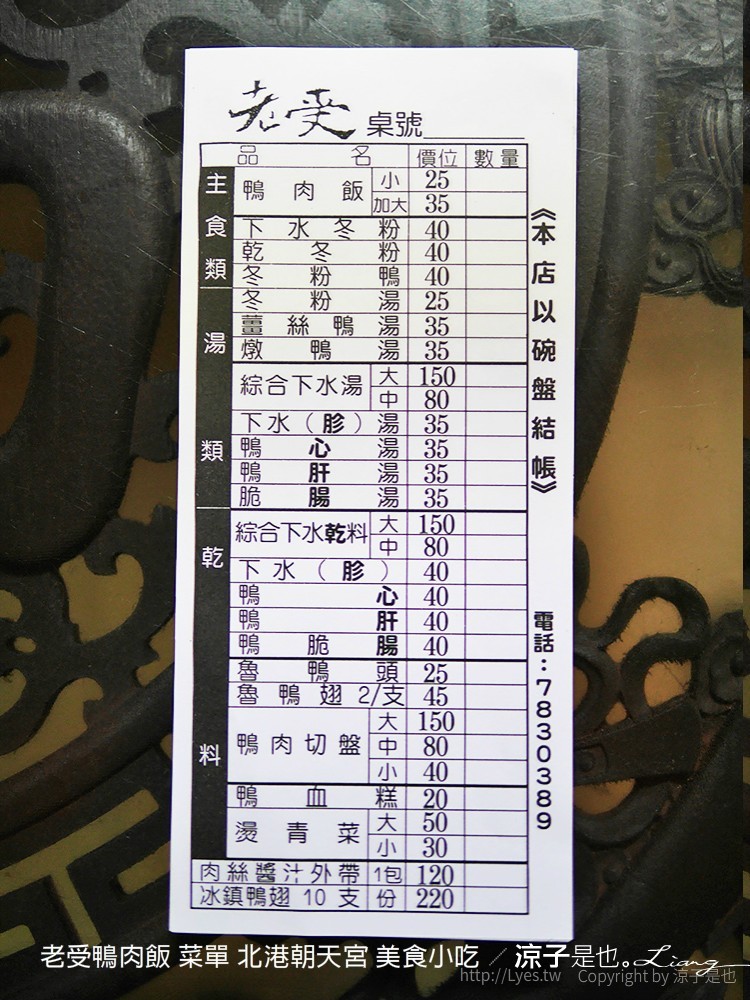 老受 桌號
品名 價位 數量
主食類
鴨肉飯 小 25
加大 35
下水冬粉 40
乾冬粉 40
冬粉鴨 40
湯類
冬粉湯 25
薑絲鴨湯 35
燉鴨湯 35
綜合下水湯 大 150
中 80
下水(胗)湯 35
鴨心湯 35
鴨肝湯 35
脆腸湯 35
乾料
綜合下水乾料 大 150
中 80
下水(胗) 40
鴨心 40
鴨肝 40
鴨脆腸 40
魯鴨頭 25
魯鴨翅2/支 45
鴨肉切盤 大 150
中 80
小 40
鴨血糕 20
燙青菜 大 50
小 30
肉絲醬汁外帶 1包 120
冰鎮鴨翅10支 份 220
《本店以碗盤結帳》
電話:7830389
老受鴨肉飯 菜單 北港朝天宮 美食小吃 / 涼子是也。Liang
http://Lyes.tw Copyright by 涼子是也